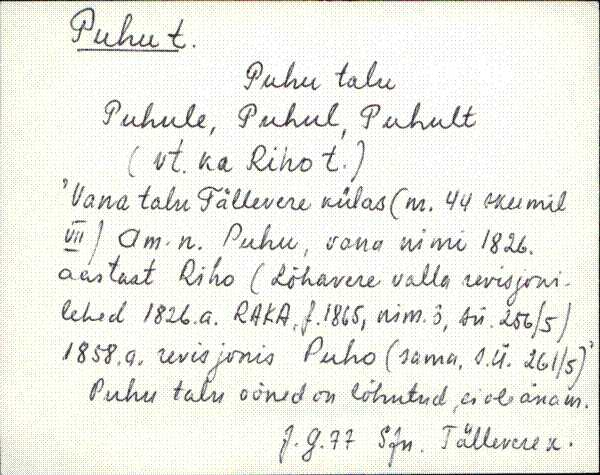 Puhu t.
Puhu talu
Puhule, Puhul, Puhult
(vt. ka Riho t.)
"Vana talu Tällevere külas (m. 44 skeemil
VII) Am. n. Puhu, vana nimi 1826.
aastast Riho (Lõhavere valla revisjoni-
lehed 1826.a. RAKA, f.1865, nim. 3, sü. 256/5)
1858.a. revisjonis Puho (sama, s.ü. 261/5)"
Puhu talu ooned on lõhutud, ei ole änam.
J. G. 77 SJn. Tällevere k.